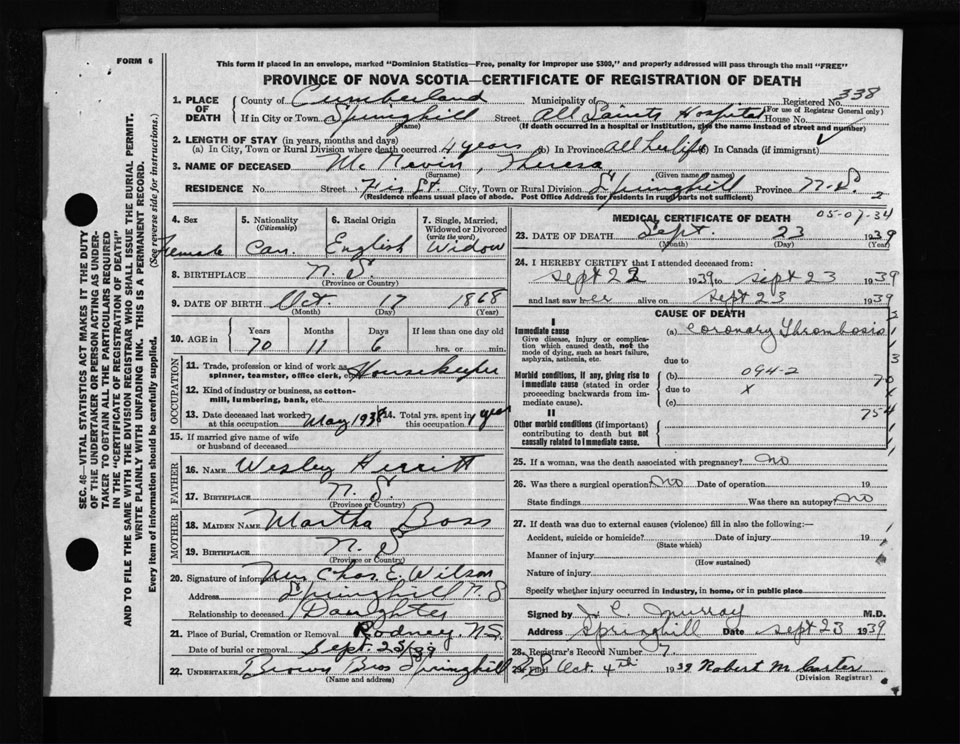 FORM 6
This form if placed in an envelope, marked "Dominion Statistics—Free, penalty for improper use $300," and properly addressed will pass through the mail "FREE"
PROVINCE OF NOVA SCOTIA—CERTIFICATE OF REGISTRATION OF DEATH
1. PLACE OF DEATH County of Cumberland Municipality of Registered No. 338
(For use of Registrar General only)
If in City or Town Springhill Street All Saints Hospital House No.
(Name) (If death occurred in a hospital or institution, give the name instead of street and number)
2. LENGTH OF STAY (in years, months and days)
(a) In City, Town or Rural Division where death occurred 4 years (b) In Province All her life (c) In Canada (if immigrant)
3. NAME OF DECEASED Theresa
(Surname) (Given name or names)
RESIDENCE No. Street City, Town or Rural Division Springhill Province N.S.
(Residence means usual place of abode. Post Office Address for residents in rural parts not sufficient) 2
4. Sex Female
5. Nationality (Citizenship) Can.
6. Racial Origin English
7. Single, Married, Widowed or Divorced (write the word) Widow
8. BIRTHPLACE N.S.
(Province or Country)
9. DATE OF BIRTH Oct 17 1868
(Month) (Day) (Year)
10. AGE in Years 70 Months 11 Days 6 If less than one day old hrs. or min.
OCCUPATION
11. Trade, profession or kind of work as spinner, teamster, office clerk, etc. Housekeeper
12. Kind of industry or business, as cotton-mill, lumbering, bank, etc.
13. Date deceased last worked at this occupation May 1938
14. Total yrs. spent in this occupation 1 year
15. If married give name of wife or husband of deceased
FATHER
16. NAME Wesley Herritt
17. BIRTHPLACE N.S.
(Province or Country)
MOTHER
18. MAIDEN NAME Martha Boss
19. BIRTHPLACE N.S
(Province or Country)
20. Signature of informant Mrs Chas. E. Wilson
Address Springhill N.S
Relationship to deceased Daughter
21. Place of Burial, Cremation or Removal Rodney, N.S.
Date of burial or removal Sept. 25/39
22. UNDERTAKER Brown Bros Springhill N.S
(Name and address)
MEDICAL CERTIFICATE OF DEATH
05-07-34
23. DATE OF DEATH Sept. 23 1939
(Month) (Day) (Year)
24. I HEREBY CERTIFY that I attended deceased from:
sept 22 1939 to sept 23 1939
and last saw her alive on sept 23 1939
CAUSE OF DEATH
I
Immediate cause (a) Coronary Thrombosis
Give disease, injury or complication which caused death, not the mode of dying, such as heart failure, asphyxia, asthenia, etc.
due to
Morbid conditions, if any, giving rise to immediate cause (stated in order proceeding backwards from immediate cause).
(b) 094-2
due to x
(c)
754
II
Other morbid conditions (if important) contributing to death but not causally related to immediate cause.
25. If a woman, was the death associated with pregnancy? no
26. Was there a surgical operation? no Date of operation 19
State findings Was there an autopsy? no
27. If death was due to external causes (violence) fill in also the following:—
Accident, suicide or homicide? Date of injury 19
(State which)
Manner of injury
(How sustained)
Nature of injury
Specify whether injury occurred in industry, in home, or in public place
Signed by J. C. Murray M.D.
Address Springhill Date sept 23 1939
28. Registrar's Record Number 7.
Oct. 4th 1939 Robert M. Carter
(Division Registrar)
SEC. 46—VITAL STATISTICS ACT MAKES IT THE DUTY
OF THE UNDERTAKER OR PERSON ACTING AS UNDERTAKER TO OBTAIN ALL THE PARTICULARS REQUIRED
IN THE "CERTIFICATE OF REGISTRATION OF DEATH"
AND TO FILE THE SAME WITH THE DIVISION REGISTRAR WHO SHALL ISSUE THE BURIAL PERMIT.
WRITE PLAINLY WITH UNFADING INK. THIS IS A PERMANENT RECORD.
Every item of information should be carefully supplied. (See reverse side for instructions.)